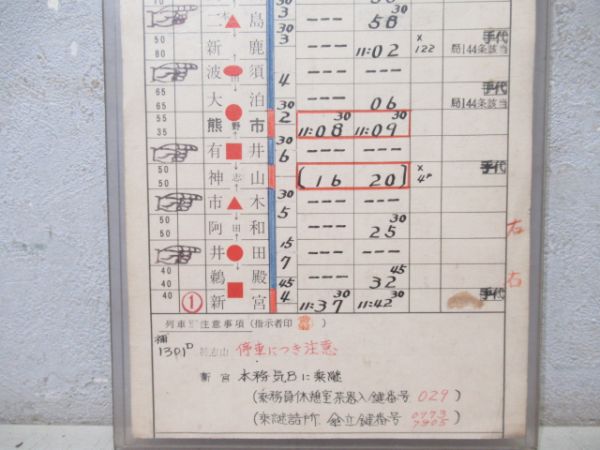 二 島 3 --- 58 30
50 新 鹿 30 3 --- 11:02 × 122 手代
80 局144条該当
波 須 4 --- ---
65 大 泊 --- 06 手代
65 30 局144条該当
55 熊 野 市 2 11:08 30 11:09 30
35
有 井 30 6 --- ---
50 神 志 山 (16 20) × 手代
50
市 木 30 5 --- ---
50 阿 田 和 --- 25 30 右
50
井 田 15 7 --- ---
40 鵜 殿 --- 32 45 右
40 45
40 ① 新 宮 4 11:37 30 11:42 30 手代
列車注意事項(指示者印)
1301D 神志山 停車につき注意
新宮 本務気Bに乗継
(乗務員休憩室茶器入鍵番号 029)
(乗継詰所 傘立鍵番号 0773
7805)